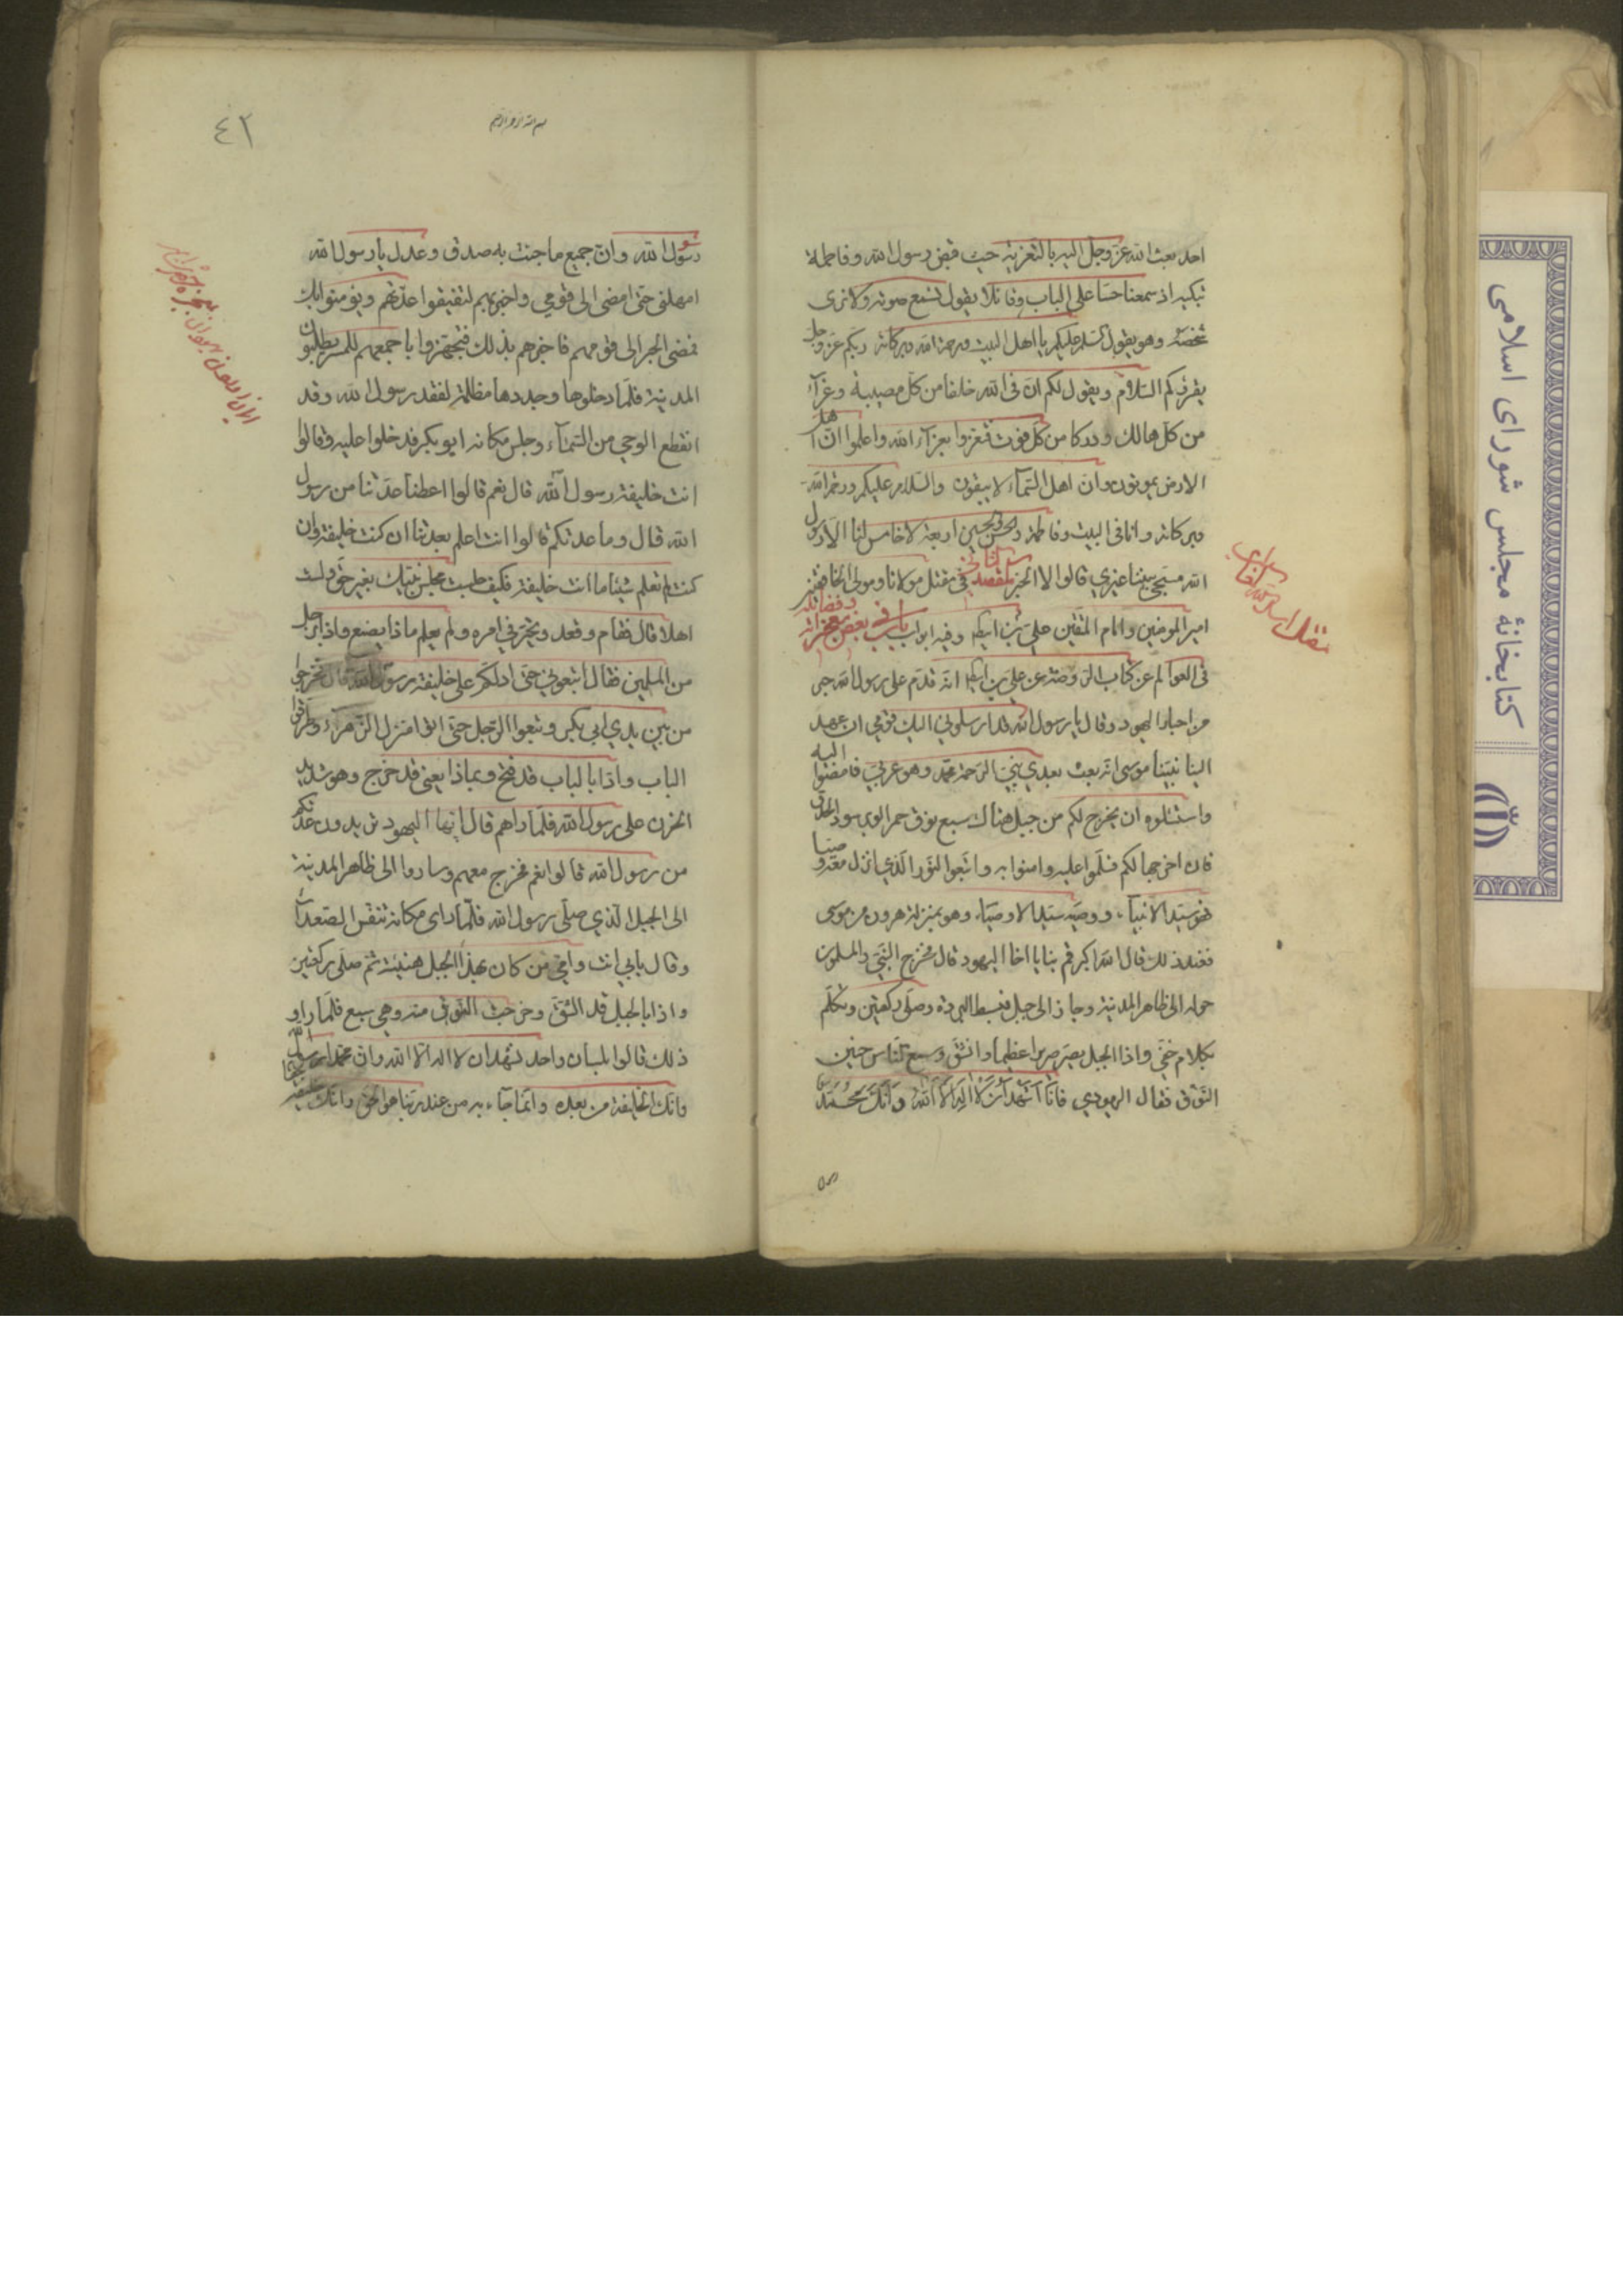 احد بعث الله عزّ وجلّ اليه بالتعزية حيث قبض رسول الله وفاطمة
تبكيه اذ سمعنا حسّا على الباب وقائلا يقول نسمع صوته ولا نرى
شخصه وهو يقول السلام عليكم يا اهل البيت ورحمة الله وبركاته ربّكم عزّ وجلّ
يقرئكم السّلام ويقول لكم انّ فى الله خلفا من كلّ مصيبة وعزآء
من كلّ هالك ودركا من كلّ فوت فتعزّوا بعزآء الله واعلموا انّ اهل
الارض يموتون وانّ اهل السّمآء لا يبقون والسّلام عليكم ورحمة الله
وبركاته وانا فى البيت وفاطمة والحسن والحسين اربعة لا خامس لنا الّا رسول
الله مسجّى بيننا غيري قالوا لا الخبر المقصد الثانى في مقتل مولانا ومولى الخافقين
امير المومنين وامام المتّقين علىّ بن ابيطالب وفيه ابواب باب فى بعض معجزاته وفضائله
فى العوالم عن كتاب الرّوضة عن علىّ بن ابيطالب انّه قدم على رسول الله حبر
من احبار اليهود وقال يا رسول الله قد ارسلوني اليك قومي انّه عهد
الينا نبيّنا موسى انّه يبعث بعدي نبيّ الرّحمة محمّد وهو عربىّ فامضوا اليه
واسئلوه ان يخرج لكم من جبل هناك سبع نوق حمر الوبر سود الحدق
فان اخرجها لكم فسلّموا عليه وامنوا به واتّبعوا النّور الّذي انزل معه
فهو سيّد الانبيآء ووصيّه سيّد الاوصيآء وهو بمنزلة هرون من موسى
فعند ذلك قال الله اكبر قم بنا يا اخا اليهود قال فخرج النّبىّ والمسلمون
حوله الى ظاهر المدينة وجاز الى جبل فبسط البردة وصلّى ركعتين وتكلّم
بكلام خفىّ واذا الجبل يصرّ صريرا عظيما وانشقّ وسمع النّاس حنين
النّوق فقال اليهودي فانا اشهد ان لا اله الّا الله وانّك محمّد
كتابخانهٔ مجلس شورای اسلامی
٤٢
بسم الله الرحمن الرحيم
رسول الله وانّ جميع ما جئت به صدق وعدل يا رسول الله
امهلني حتّى امضى الى قومي واخبرهم ليقضوا عدّتهم ويؤمنوا بك
فمضى الحبر الى قومهم فاخبرهم بذلك فتجهّزوا باجمعهم للمسير يطلبون
المدينة فلمّا دخلوها وجدوها مظلمة لفقد رسول الله وقد
انقطع الوحي من السّمآء وجلس مكانه ابو بكر فدخلوا عليه وقالوا
انت خليفة رسول الله قال نعم قالوا اعطنا عدّتنا من رسول
الله قال وما عدتكم قالوا انت اعلم بعدتنا ان كنت خليفة وان
كنت لم تعلم شيئا ما انت خليفة فكيف جلست مجلس نبيّك بغير حقّ ولست
اهلا قال فقام وقعد وتحيّر في امره ولم يعلم ماذا يصنع واذا برجل
من المسلمين فقال اتّبعوني حتّى ادلّكم على خليفة رسول الله قال فخرجوا
من بين يدي ابي بكر وتبعوا الرّجل حتّى اتوا منزل الزّهرآء وطرقوا
الباب واذا بالباب قد فتح وبماذا يعني قد خرج وهو شديد
الحزن على رسول الله فلمّا راهم قال ايّها اليهود تريدون عدتكم
من رسول الله قالوا نعم فخرج معهم وساروا الى ظاهر المدينة
الى الجبل الّذي صلّى رسول الله فلمّا راى مكانه تنفّس الصّعدآء
وقال بابي انت وامّي من كان بهذا الجبل هنيئة ثمّ صلّى ركعتين
واذا بالجبل قد انشقّ وخرجت النّوق منه وهي سبع فلمّا راو
ذلك قالوا بلسان واحد نشهد ان لا اله الّا الله وانّ محمّدا رسول الله
وانّك الخليفة من بعده وانّما جآء به من عند ربّنا هو الحقّ وانّك خليفته